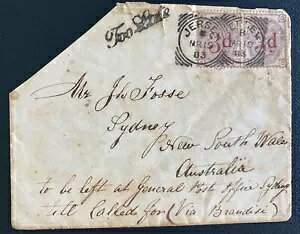 Too Late
JERSEY
MR 12
83
3d
d
Mr. Jh Fosse
Sydney
New South Wales
Australia
to be left at General Post Office Sydney
till Called for (Via Brindisi)